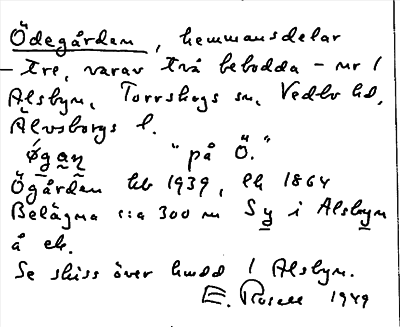 Ödegården, hemmansdelar
- tre, varav två bebodda - nr 1
Alsbyn, Torrskogs sn, Vedbo hd,
Älvsborgs l.
"på Ö."
Ögården hb 1939, Ek 1864
Belägna c:a 300 m Sy i Alsbyn
å ek.
Se skiss över huvud 1 Alsbyn.
E. Rosell 1949